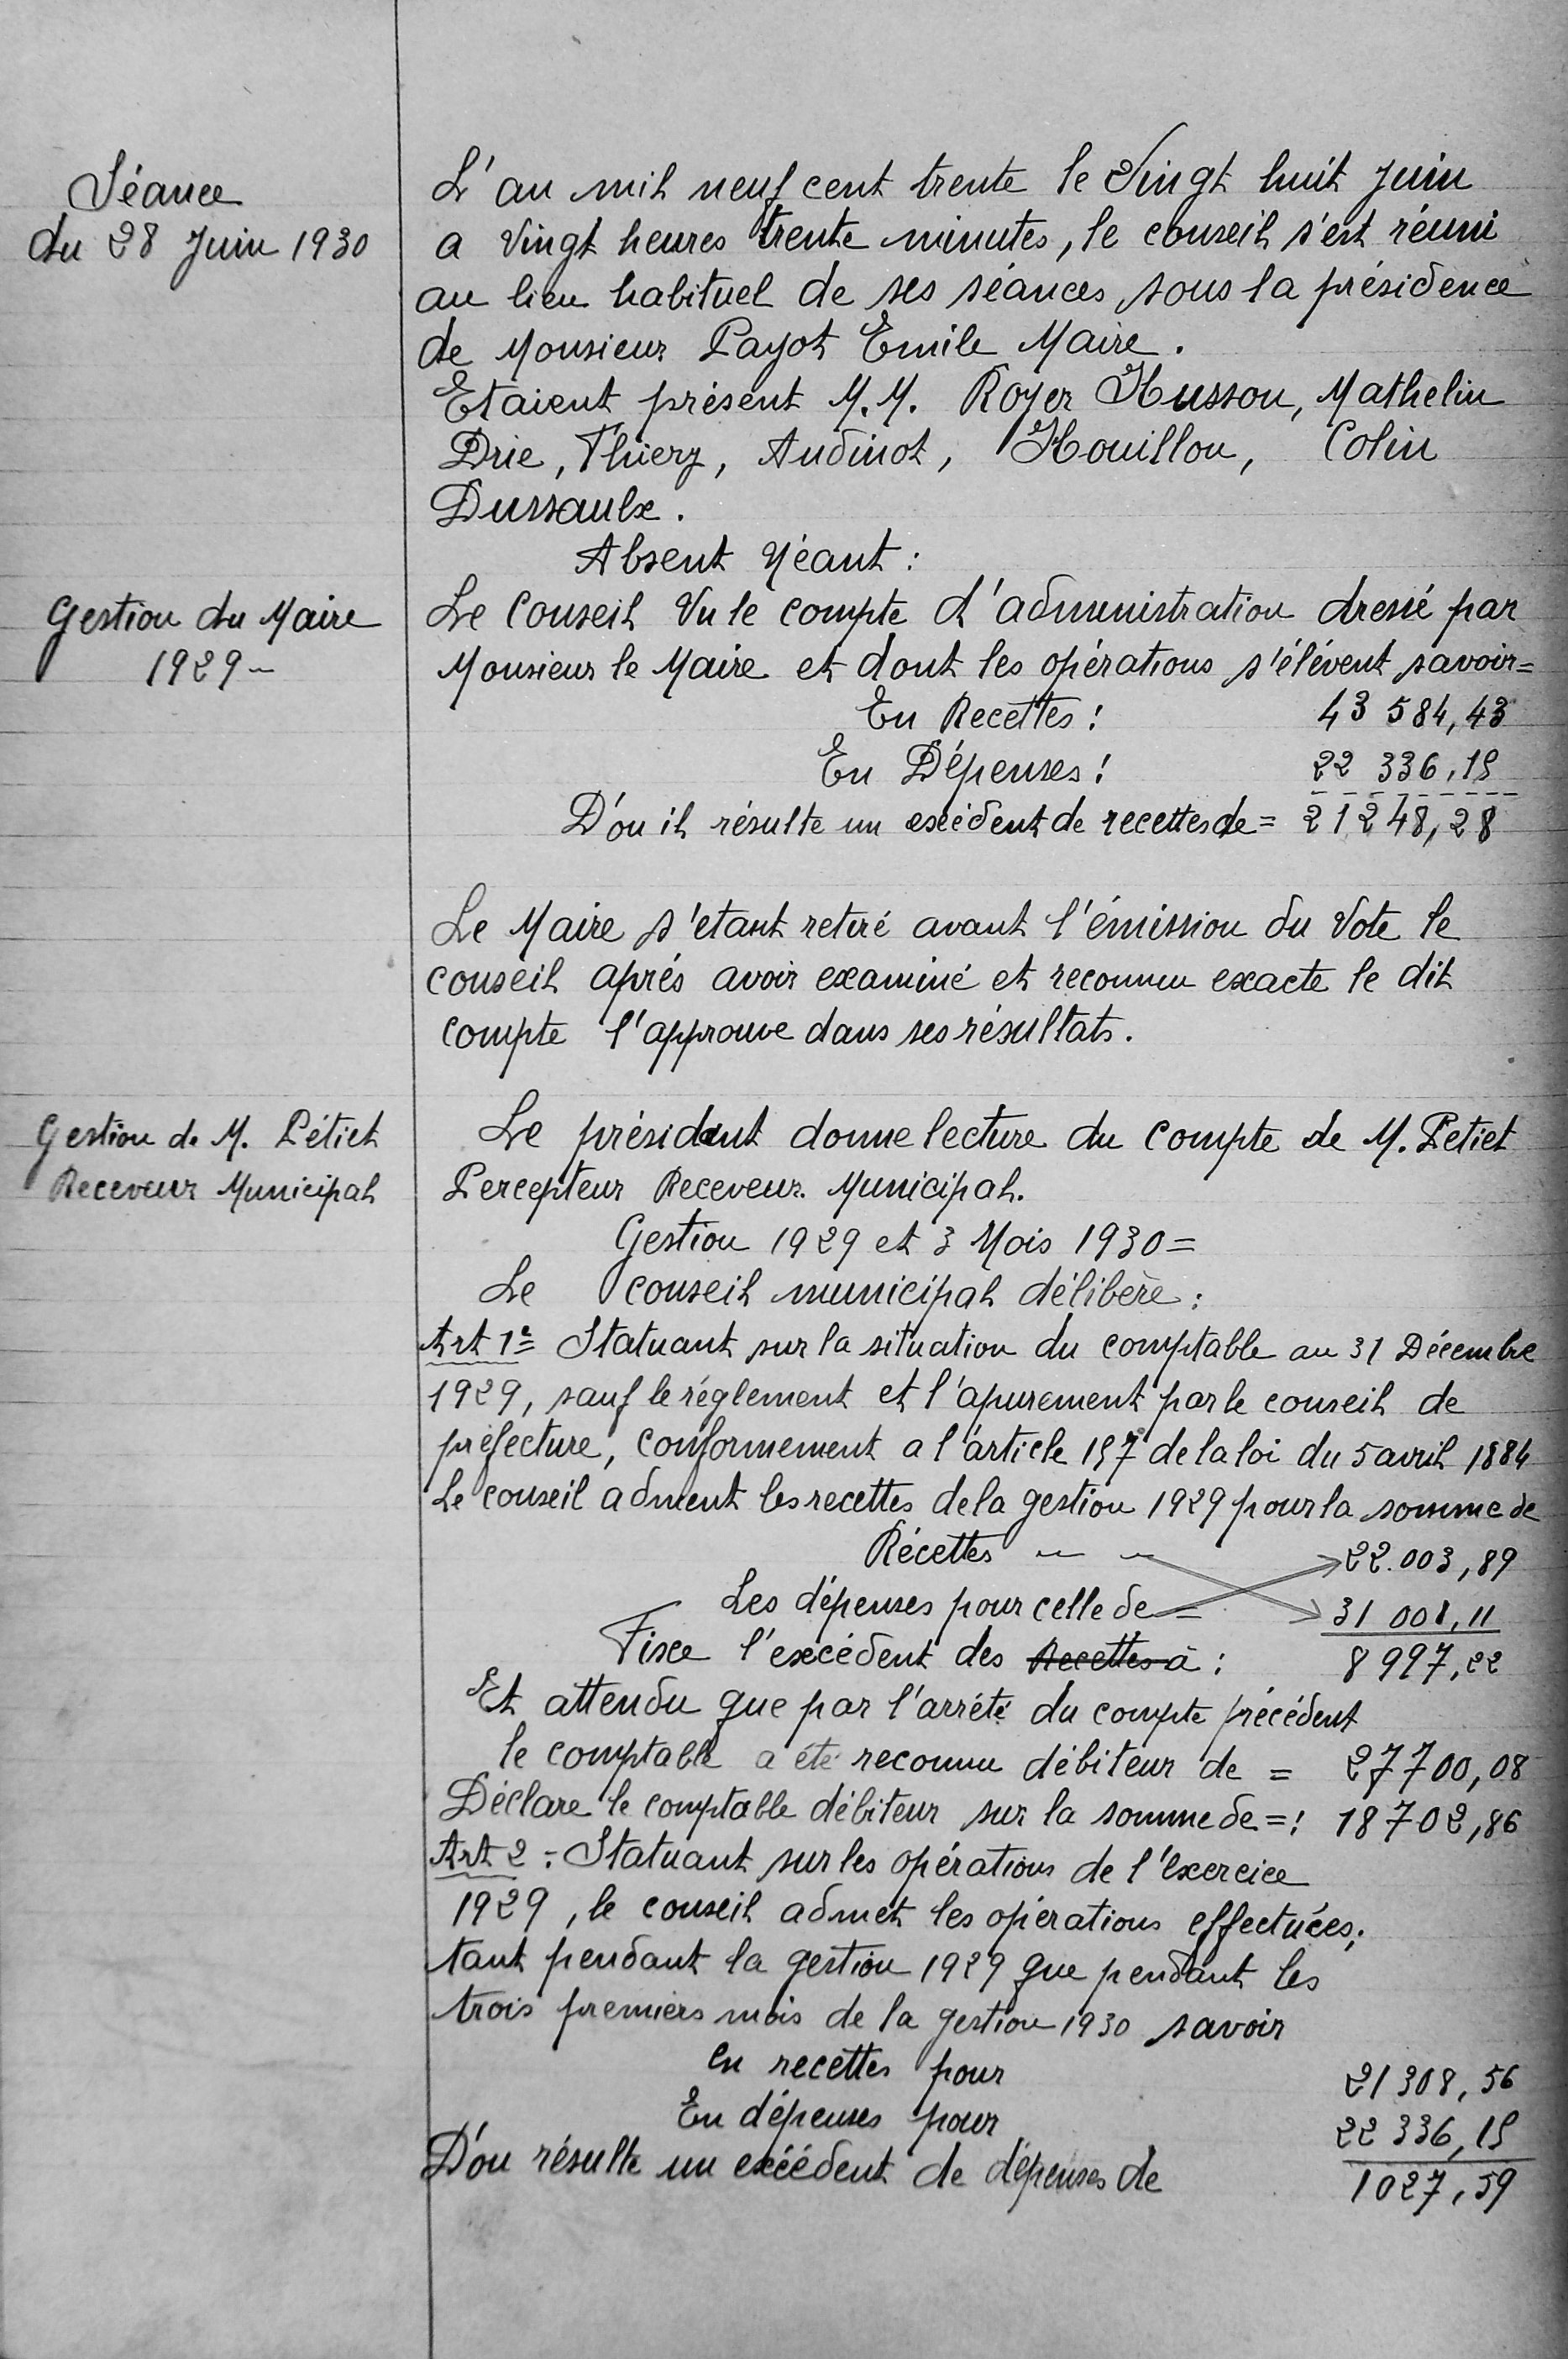 Séance
du 28 Juin 1930
L'an mil neuf cent trente le Vingt huit Juin
a Vingt heures trente minutes, le conseil s'est réuni
au lieu habituel de ses séances, sous la présidence
de Monsieur Payot Emile Maire.
Etaient présent M.M. Royer Husson, Mathelin
Drie, Thiery, Audinot, Houillon, Colin
Dussaulx.
Absent Néant :
Gestion du Maire
1929 -
Le Conseil Vu le compte d'administration dressé par
Monsieur le Maire et dont les opérations s'élévent savoir=
En Recettes : 43 584,43
En Dépenses : 22 336,15
D'ou il résulte un excédent de recettes de = 21248,28
Le Maire s'etant retiré avant l'émission du Vote le
conseil aprés avoir examiné et reconnu exacte le dit
compte l'approuve dans ses résultats.
Gestion de M. Pétiet
Receveur Municipal
Le président donne lecture du compte de M. Petiet
Percepteur Receveur Municipal.
Gestion 1929 et 3 Mois 1930 =
Le conseil municipal délibère :
Art 1e = Statuant sur la situation du comptable au 31 Décembre
1929, sauf le réglement et l'apurement par le conseil de
préfecture, conformement a l'article 157 de la loi du 5 avril 1884
Le conseil adment les recettes de la gestion 1929 pour la somme de
Récettes - - 22.003,89
Les dépenses pour celle de = 31 001,11
Fixe l'excédent des Recettes à : 8 997,22
Et attendu que par l'arrété du compte précédent
le comptable a été reconnu débiteur de = 27700,08
Déclare le comptable débiteur sur la somme de = : 18702,86
Art 2 : Statuant sur les opérations de l'exercice
1929, le conseil admet les opérations effectuées;
tant pendant la gestion 1929 que pendant les
trois premiers mois de la gestion 1930 savoir
en recettes pour 21 308,56
En dépenses pour 22 336,15
D'ou résulte un excédent de dépenses de 1027,59